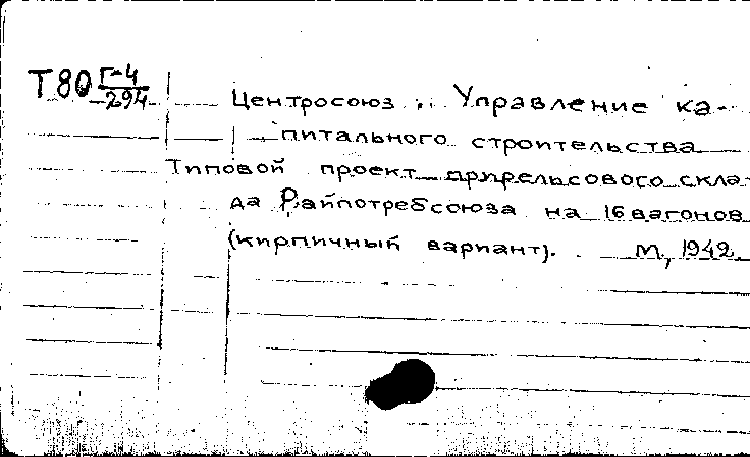 Т80 Г-4
294
Центросоюз. Управление ка-
питального строительства
Типовой проект прирельсового скла-
да Райпотребсоюза на 16 вагонов
(кирпичный вариант). М., 1942.